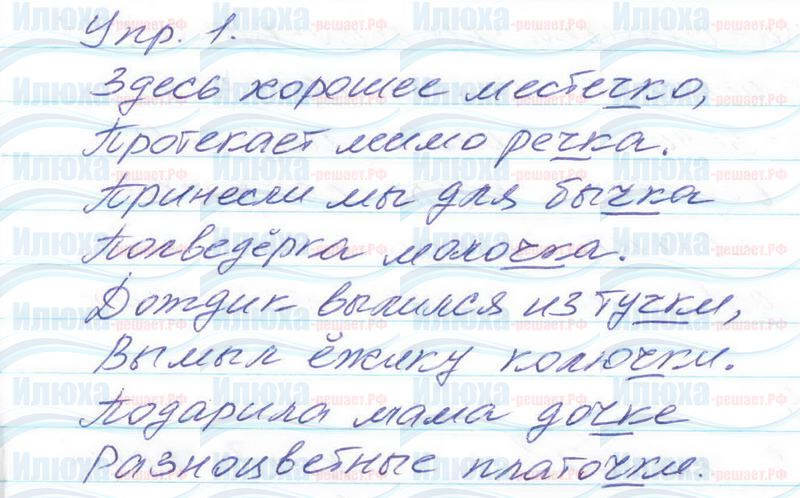 Упр. 1.
Здесь хорошее местечко,
Протекает мимо речка.
Принесли мы для бычка
Полведёрка молочка.
Дождик вылился из тучки,
Вымыл ёжику колючки.
Подарила мама дочке
Разноцветные платочки.